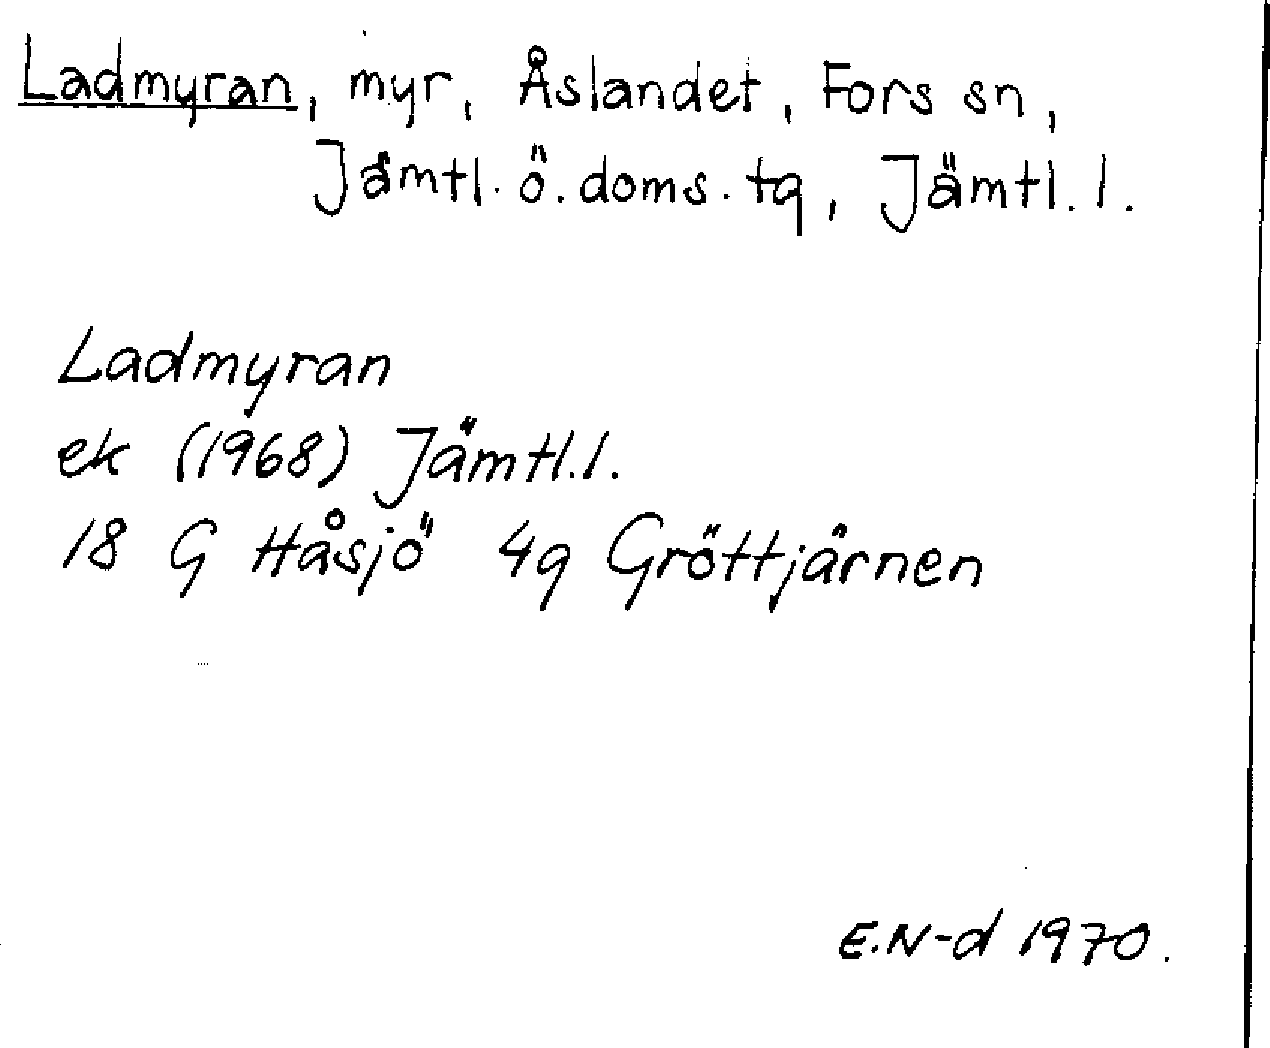 Ladmyran, myr, Åslandet, Fors sn,
Jämtl. ö. doms. tq, Jämtl. l.
Ladmyran
ek (1968) Jämtl. l.
18 G Håsjö 4q Gröttjärnen
E.N-d 1970.